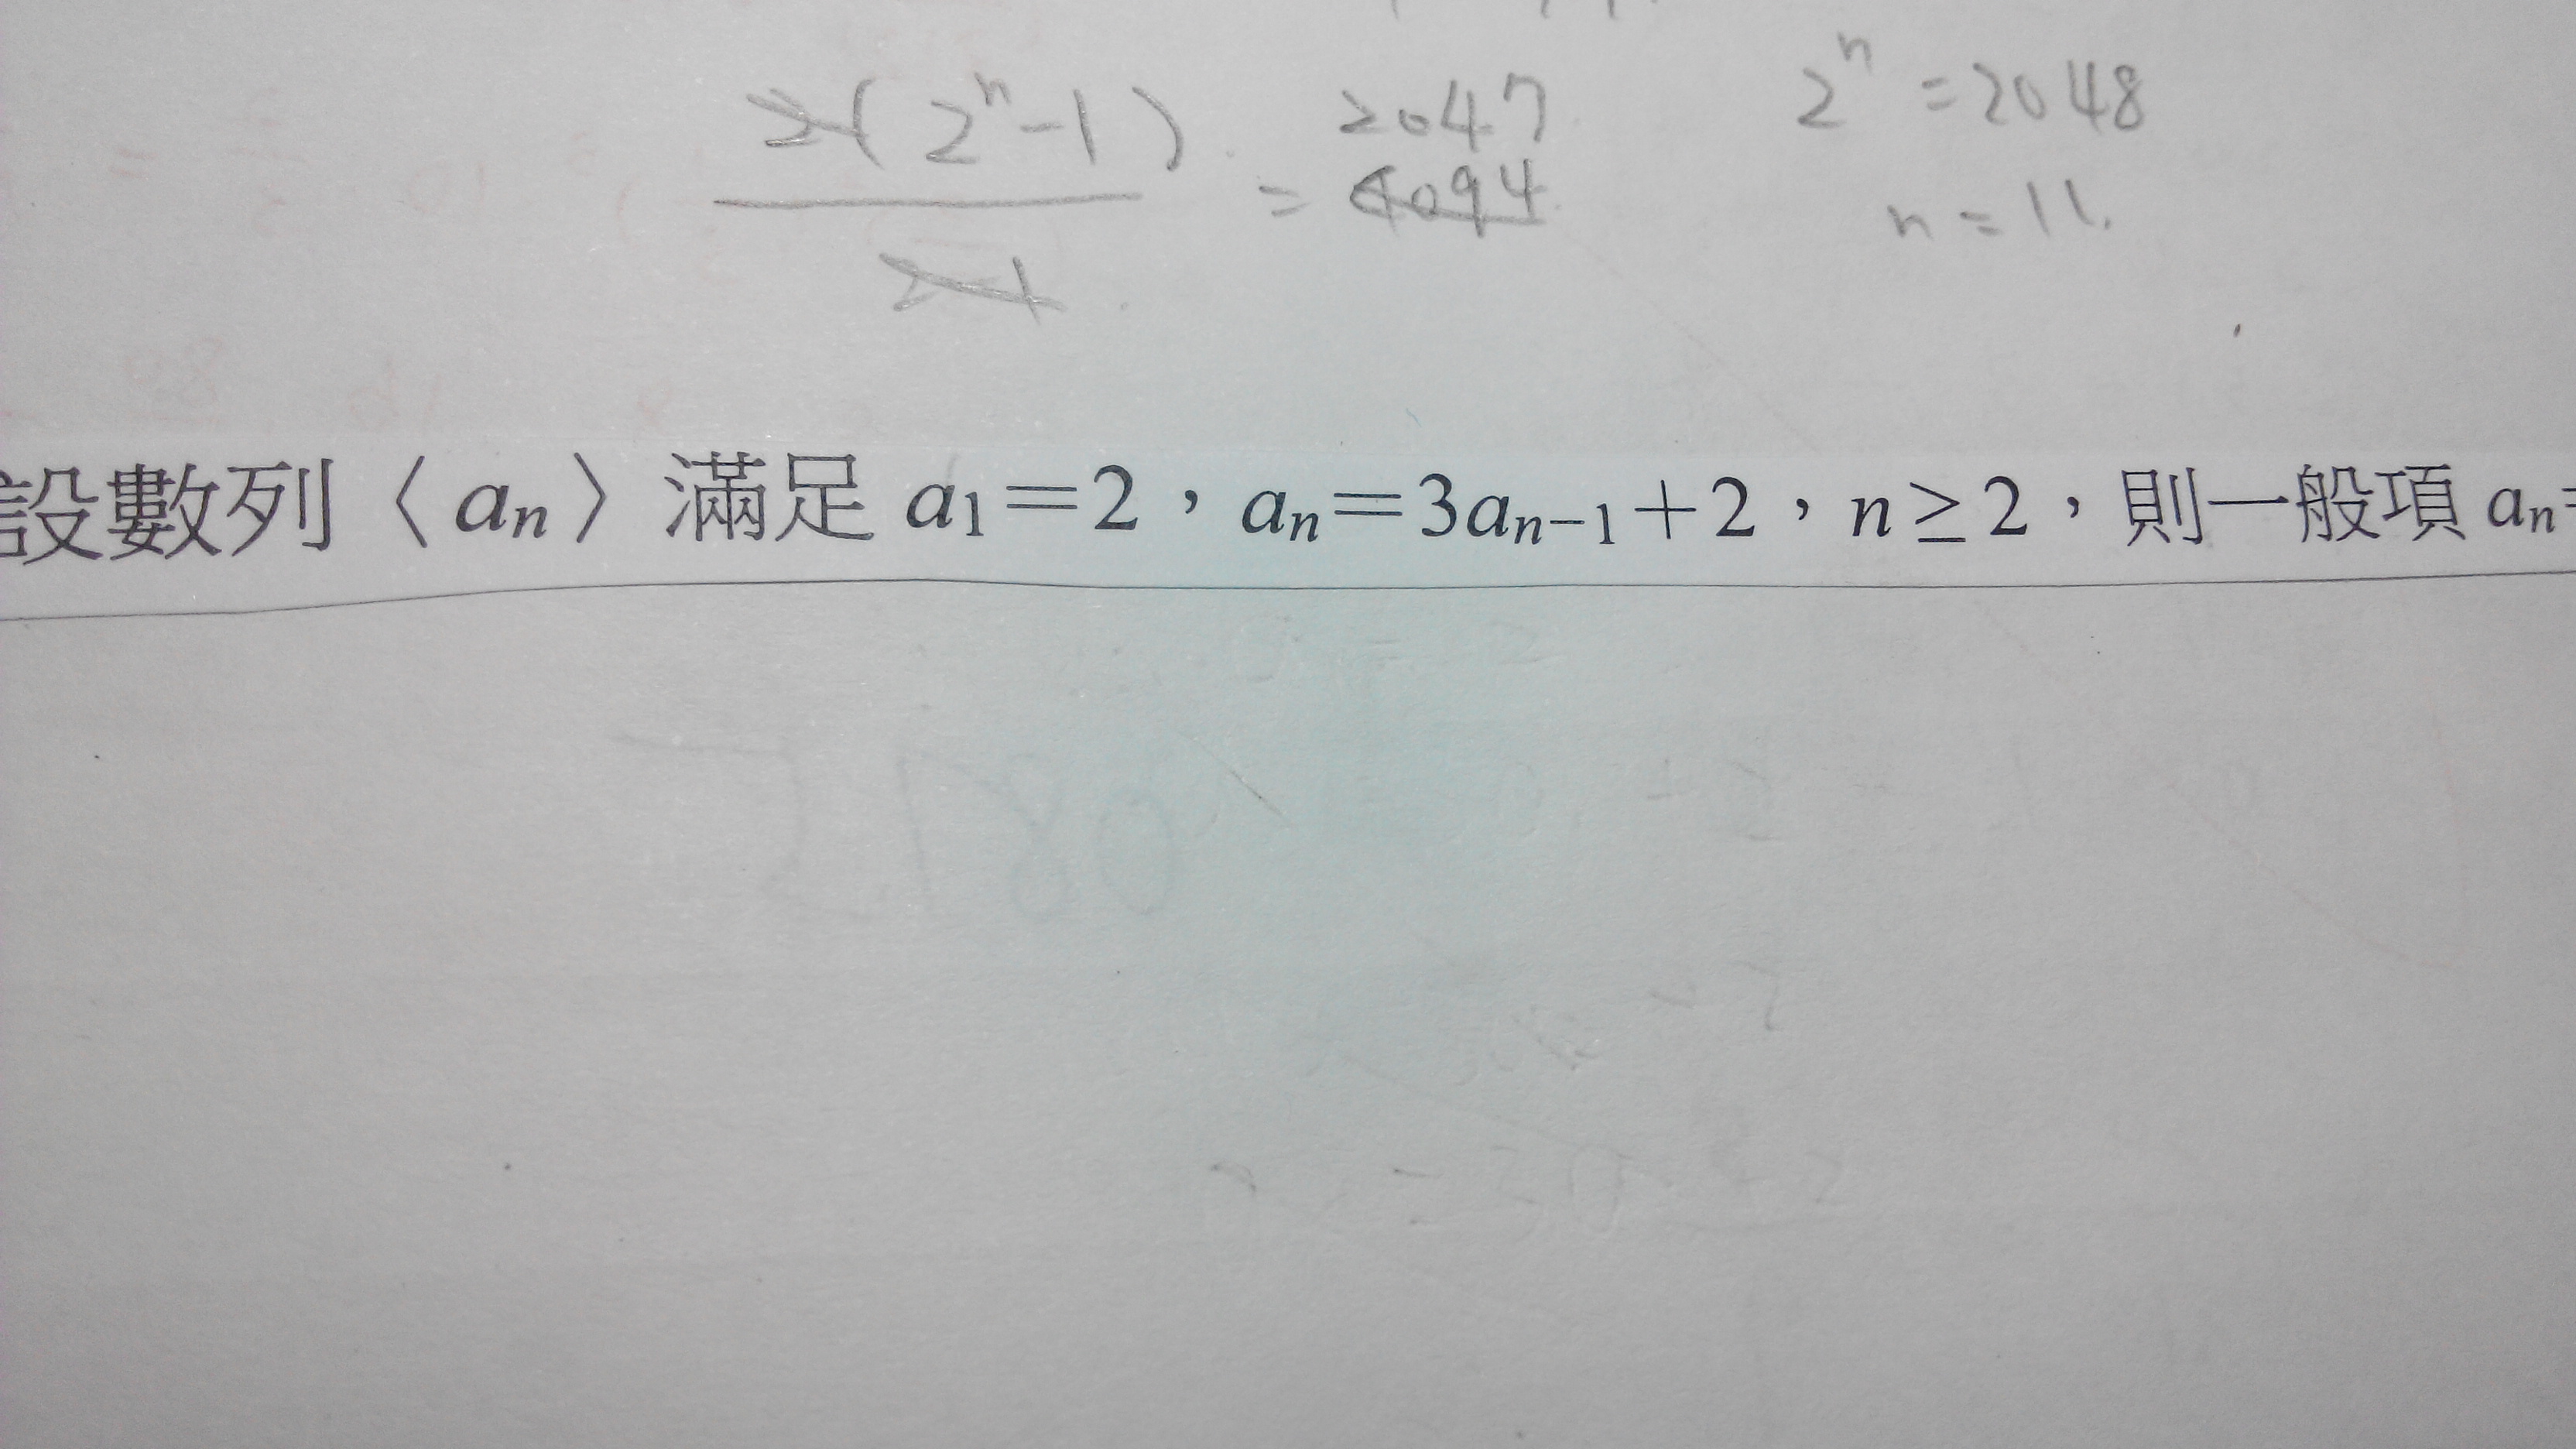 2(2ⁿ-1) / 2-1 = 4094 2047 2ⁿ = 2048
n = 11.
設數列〈aₙ〉滿足 a₁=2，aₙ=3aₙ₋₁+2，n≥2，則一般項 aₙ=